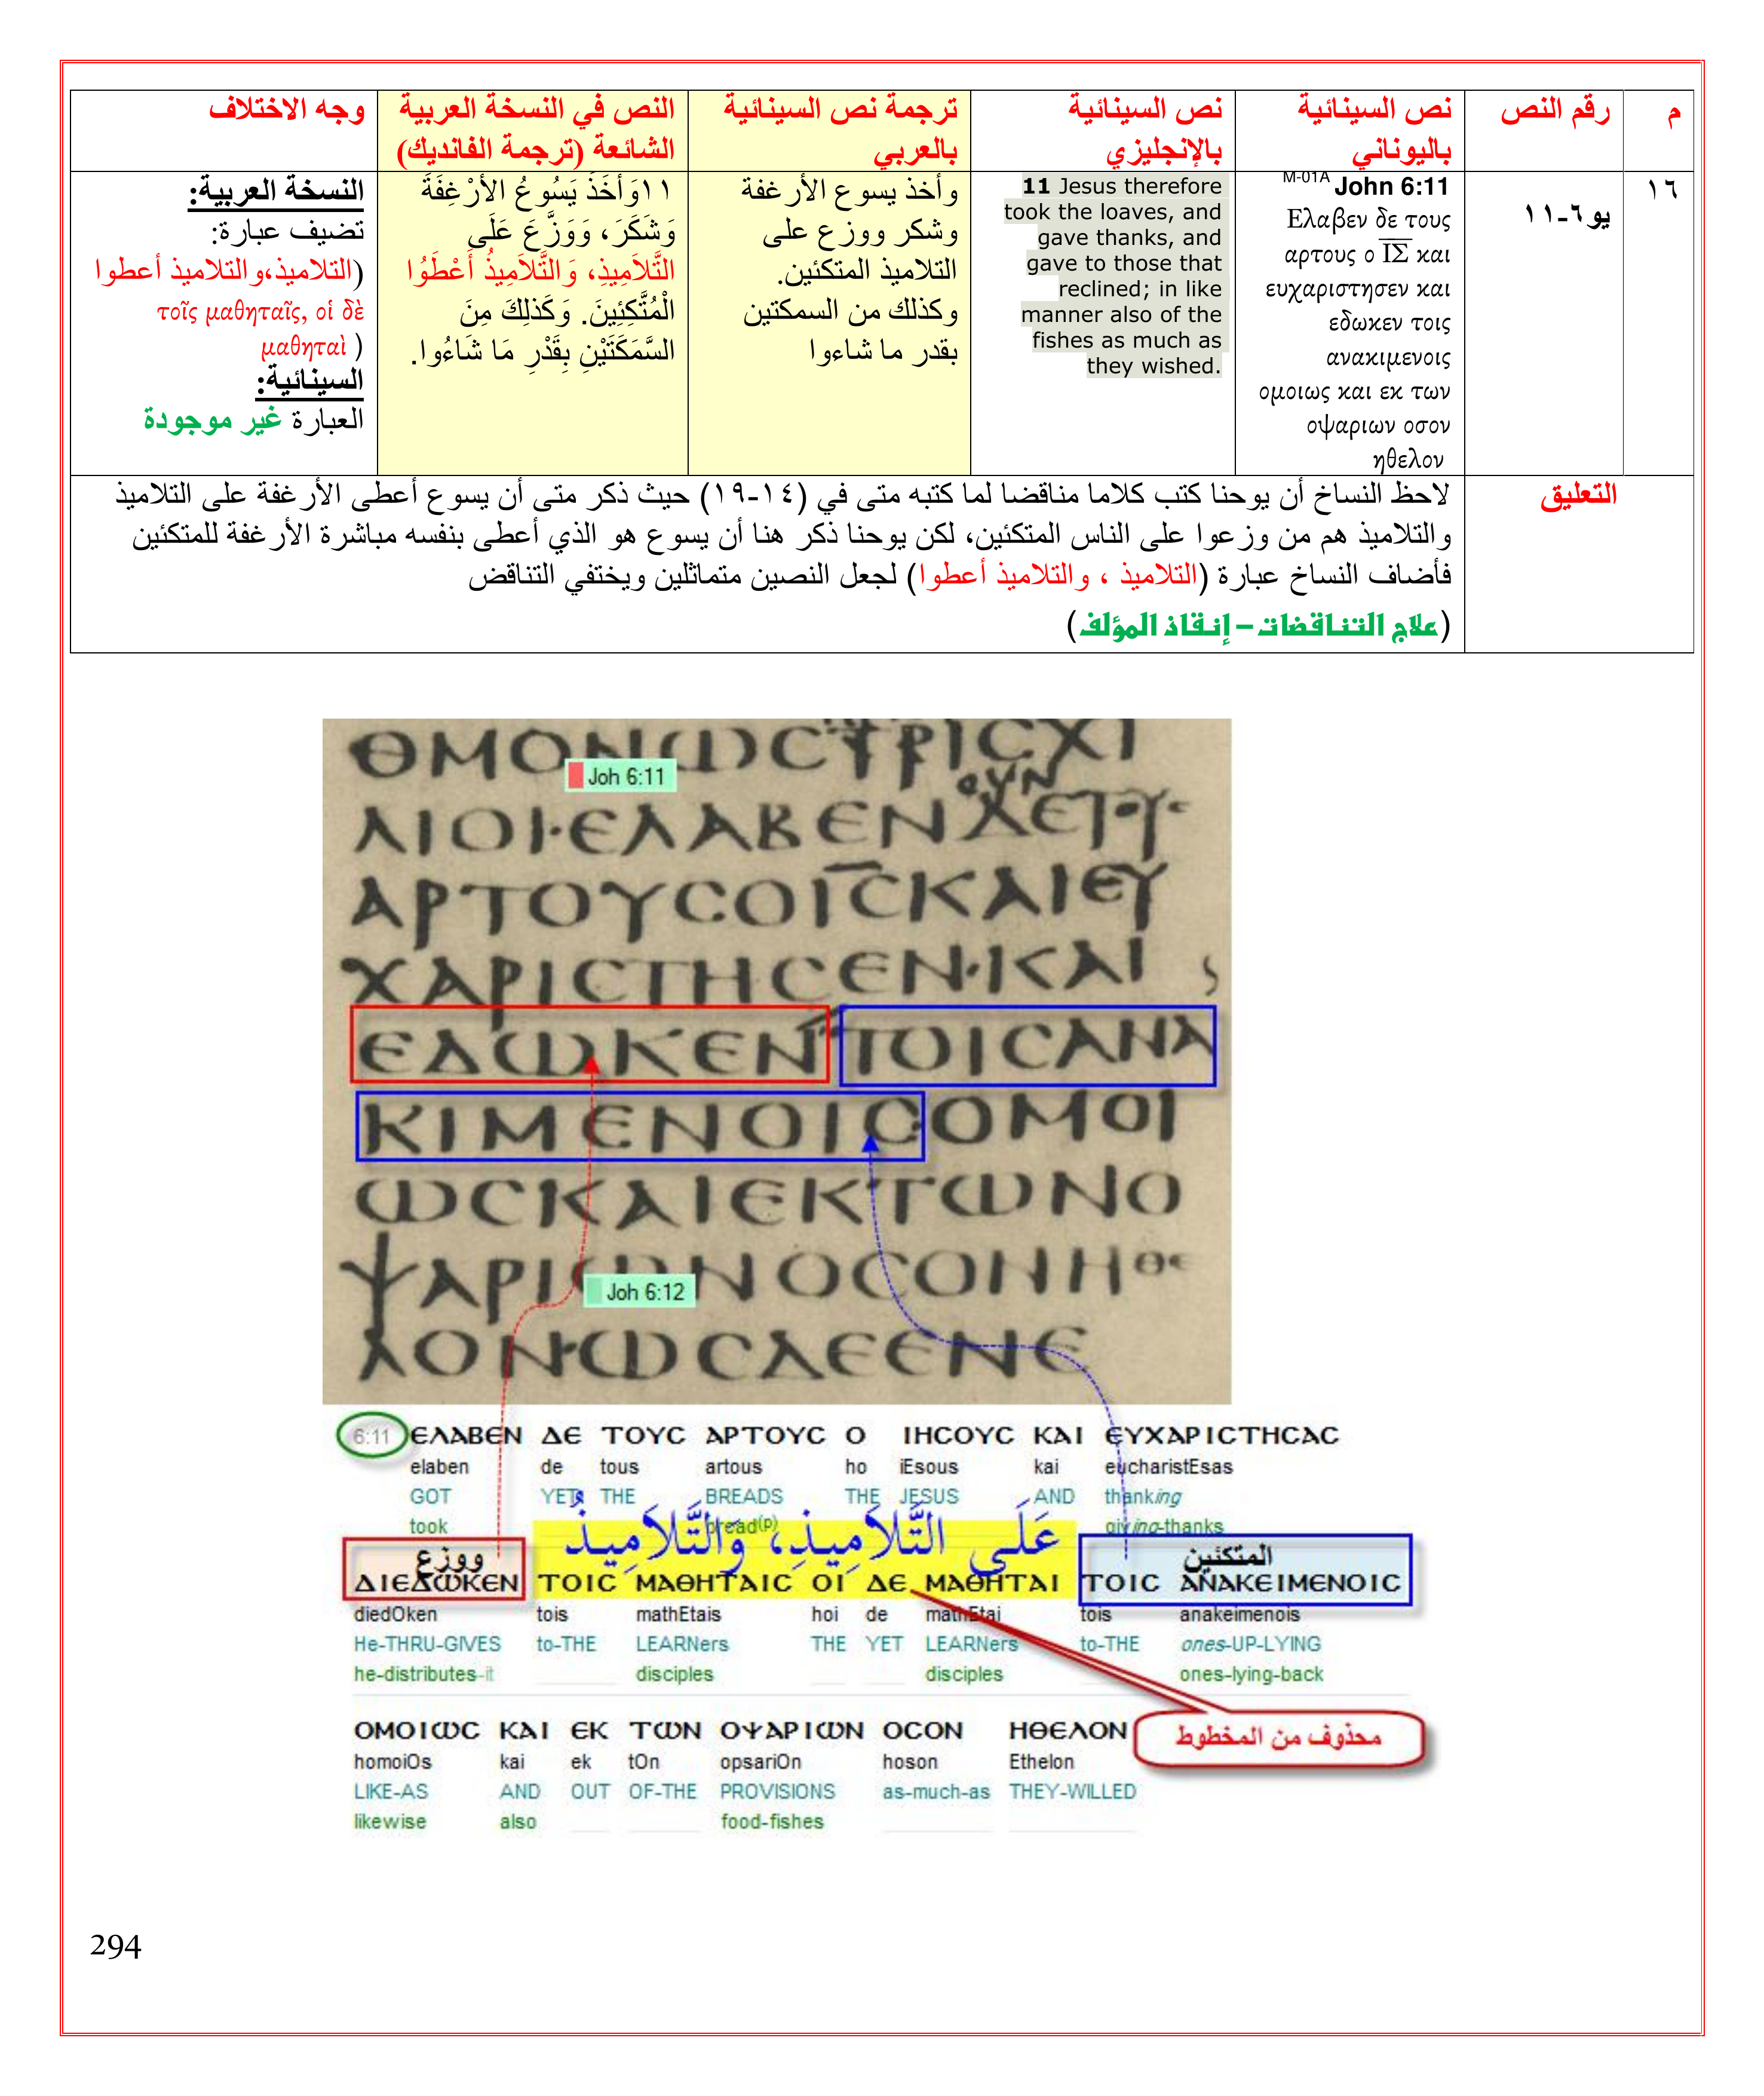 م
رقم النص
نص السينائية
باليوناني
نص السينائية
بالإنجليزي
ترجمة نص السينائية
بالعربي
النص في النسخة العربية
الشائعة (ترجمة الفانديك)
وجه الاختلاف
١٦
يو٦-١١
M-01A John 6:11
Ελαβεν δε τους
αρτους ο ΙΣ και
ευχαριστησεν και
εδωκεν τοις
ανακιμενοις
ομοιως και εκ των
οψαριων οσον
ηθελον
11 Jesus therefore
took the loaves, and
gave thanks, and
gave to those that
reclined; in like
manner also of the
fishes as much as
they wished.
وأخذ يسوع الأرغفة
وشكر ووزع على
التلاميذ المتكئين.
وكذلك من السمكتين
بقدر ما شاءوا
١١وَأَخَذَ يَسُوعُ الأَرْغِفَةَ
وَشَكَرَ، وَوَزَّعَ عَلَى
التَّلاَمِيذِ، وَالتَّلاَمِيذُ أَعْطَوُا
الْمُتَّكِئِينَ. وَكَذلِكَ مِنَ
السَّمَكَتَيْنِ بِقَدْرِ مَا شَاءُوا.
النسخة العربية:
تضيف عبارة:
(التلاميذ،والتلاميذ أعطوا
τοῖς μαθηταῖς, οἱ δὲ
μαθηταὶ )
السينائية:
العبارة غير موجودة
التعليق
لاحظ النساخ أن يوحنا كتب كلاما مناقضا لما كتبه متى في (١٤-١٩) حيث ذكر متى أن يسوع أعطى الأرغفة على التلاميذ
والتلاميذ هم من وزعوا على الناس المتكئين، لكن يوحنا ذكر هنا أن يسوع هو الذي أعطى بنفسه مباشرة الأرغفة للمتكئين
فأضاف النساخ عبارة (التلاميذ ، والتلاميذ أعطوا) لجعل النصين متماثلين ويختفي التناقض
(علاج التناقضات – إنقاذ المؤلف)
ΘΜΟΝΩϹΤΡΙϹΧΙ
Joh 6:11
ΟΥΝ
ΛΙΟΙ·ΕΛΑΒΕΝΔΕΤΟΥϹ
ΑΡΤΟΥϹΟΙϹΚΑΙΕΥ
ΧΑΡΙϹΤΗϹΕΝ·ΚΑΙ
ΕΔΩΚΕΝΤΟΙϹΑΝΑ
ΚΙΜΕΝΟΙϹΟΜΟΙ
ΩϹΚΑΙΕΚΤΩΝΟ
ΨΑΡΙΩΝΟϹΟΝΗΘΕ
Joh 6:12
ΛΟΝ·ΩϹΔΕΕΝΕ
6:11 ΕΛΑΒΕΝ ΔΕ ΤΟΥϹ ΑΡΤΟΥϹ Ο ΙΗϹΟΥϹ ΚΑΙ ΕΥΧΑΡΙϹΤΗϹΑϹ
elaben de tous artous ho iEsous kai eucharistEsas
GOT YET THE BREADS THE JESUS AND thanking
took bread(p) giving-thanks
ووزع عَلَى التَّلاَمِيذِ، وَالتَّلاَمِيذُ المتكئين
ΔΙΕΔΩΚΕΝ ΤΟΙϹ ΜΑΘΗΤΑΙϹ ΟΙ ΔΕ ΜΑΘΗΤΑΙ ΤΟΙϹ ΑΝΑΚΕΙΜΕΝΟΙϹ
diedOken tois mathEtais hoi de mathEtai tois anakeimenois
He-THRU-GIVES to-THE LEARNers THE YET LEARNers to-THE ones-UP-LYING
he-distributes-it disciples disciples ones-lying-back
ΟΜΟΙΩϹ ΚΑΙ ΕΚ ΤΩΝ ΟΨΑΡΙΩΝ ΟϹΟΝ ΗΘΕΛΟΝ
محذوف من المخطوط
homoiOs kai ek tOn opsariOn hoson Ethelon
LIKE-AS AND OUT OF-THE PROVISIONS as-much-as THEY-WILLED
likewise also food-fishes
294